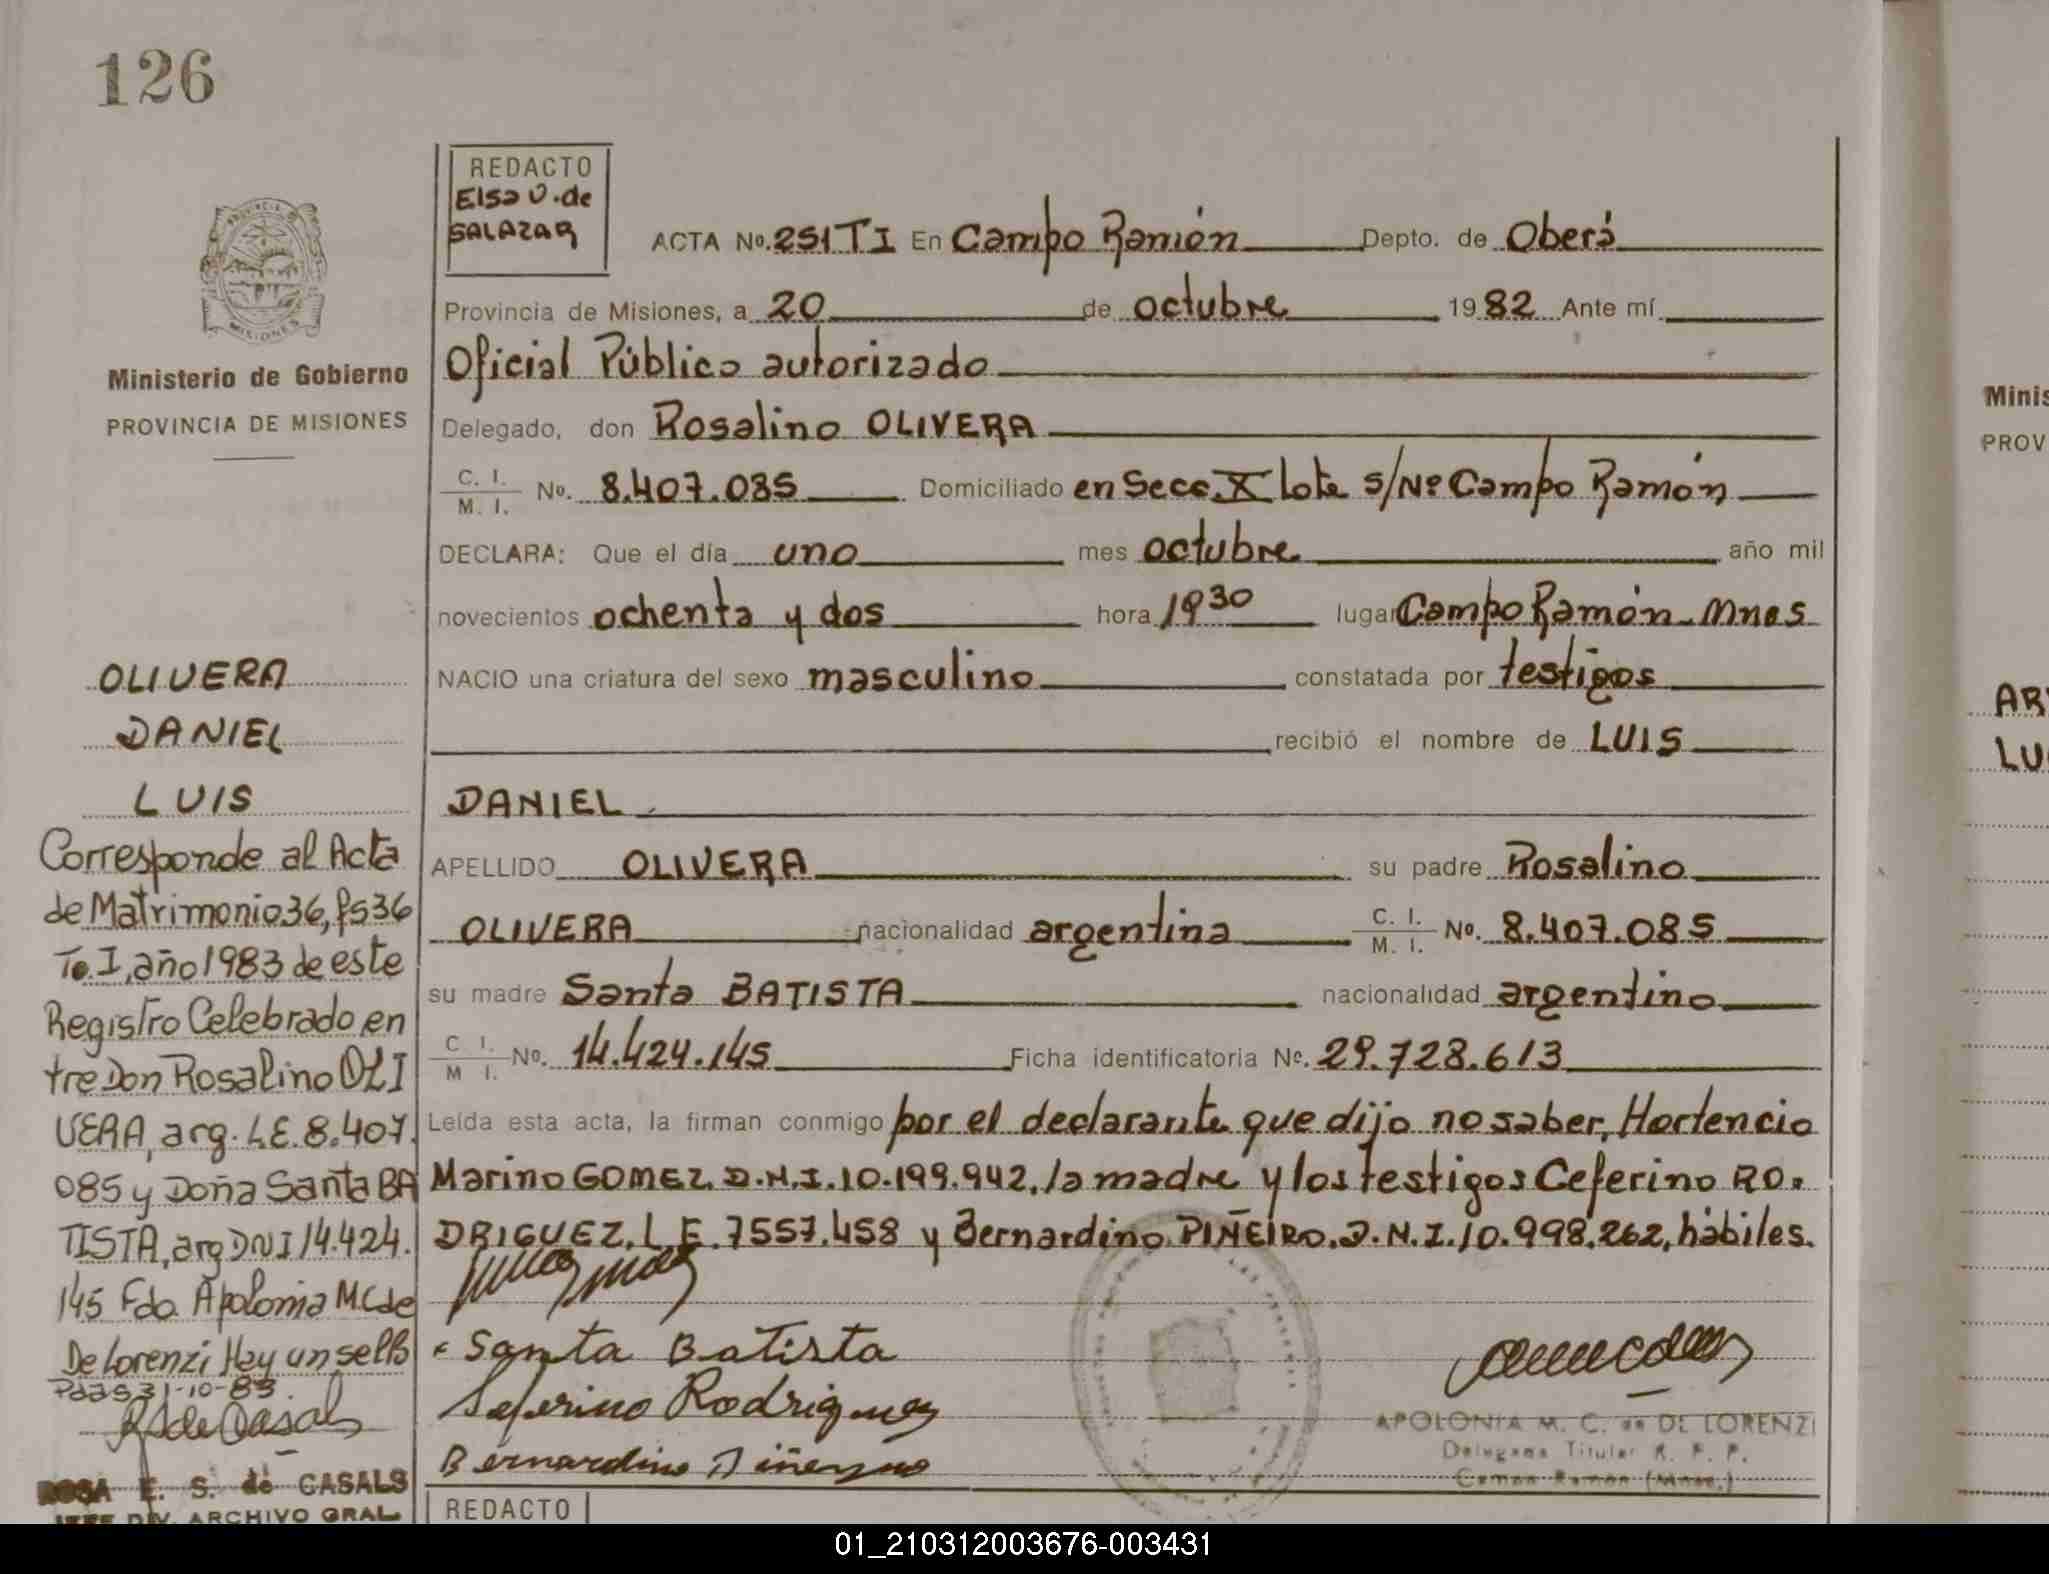 126
REDACTO
Elsa V. de
SALAZAR
ACTA No. 251 T I En Campo Ramón Depto. de Oberá
PROVINCIA DE
MISIONES
Provincia de Misiones, a 20 de octubre 1982 Ante mí
Ministerio de Gobierno
PROVINCIA DE MISIONES
Oficial Público autorizado
Delegado, don Rosalino OLIVERA
C. I.
M. I. No. 8.407.085 Domiciliado en Secc. X lote s/Nº Campo Ramón
DECLARA: Que el día uno mes octubre año mil
novecientos ochenta y dos hora 19 30 lugar Campo Ramón - Mnes
NACIO una criatura del sexo masculino constatada por testigos
recibió el nombre de LUIS
DANIEL
APELLIDO OLIVERA su padre Rosalino
OLIVERA nacionalidad argentina C. I. M. I. No. 8.407.085
su madre Santa BATISTA nacionalidad argentino
C I. M I. No. 14.424.145 Ficha identificatoria No. 29.728.613
Leída esta acta, la firman conmigo por el declarante que dijo no saber, Hortencio
Marino GOMEZ. D.N.I. 10.199.942, la madre y los testigos Ceferino RO.
DRIGUEZ. L E. 7557.458 y Bernardino PIÑEIRO. D.N.I. 10.998.262, hábiles.
Santa Batista
Seferino Rodriguez
Bernardino
APOLONIA M. C. de DE LORENZI
Delegada Titular R. P. P.
Campo Ramón (Mnes.)
REDACTO
OLIVERA
DANIEL
LUIS
Corresponde al Acta
de Matrimonio 36, fs 36
To. I, año 1983 de este
Registro Celebrado en
tre Don Rosalino OLI
VERA, arg. L.E. 8.407.
085 y Doña Santa BA
TISTA, arg DNI 14.424.
145 Fdo. Apolonia M.C de
De Lorenzi Hay un sello
Pdas 31-10-83.
R S de Casals
ROSA E. S. de CASALS
JEFE DIV. ARCHIVO GRAL.
Minis
PROV
AR
LU
01_210312003676-003431